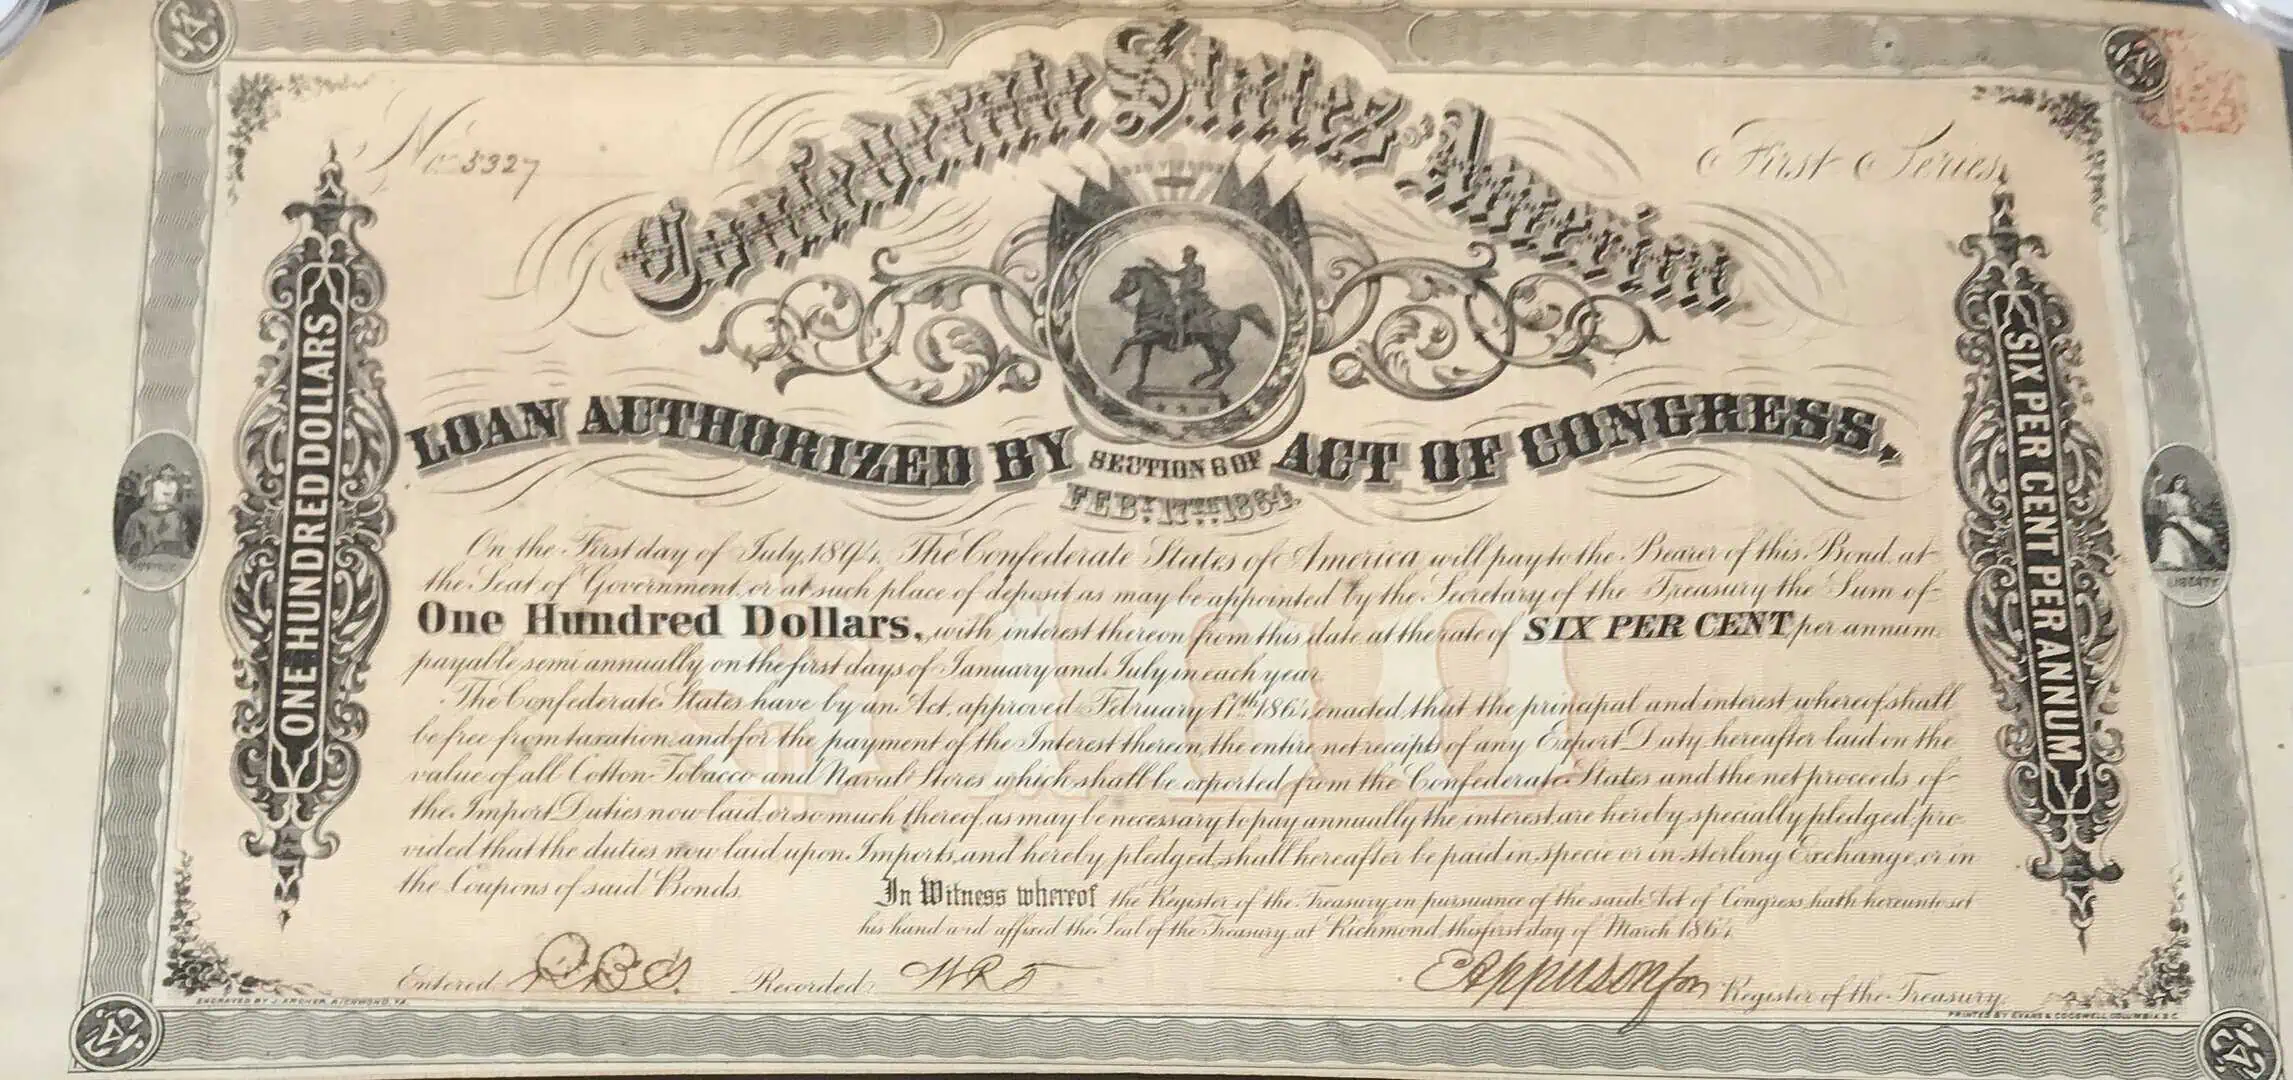 No 3327
Confederate States America
First Series
DEO VINDICE
ONE HUNDRED DOLLARS
SIX PER CENT PER ANNUM
LOAN AUTHORIZED BY SECTION 6 OF ACT OF CONGRESS,
FEBY 17TH 1864.
On the First day of July, 1894, The Confederate States of America will pay to the Bearer of this Bond, at
the Seat of Government, or at such place of deposit as may be appointed by the Secretary of the Treasury the Sum of
One Hundred Dollars, with interest thereon from this date at the rate of SIX PER CENT per annum
payable semi annually on the first days of January and July in each year.
The Confederate States have by an Act, approved February 17th 1864, enacted that the principal and interest whereof shall
be free from taxation, and for the payment of the Interest thereon, the entire net receipts of any Export Duty hereafter laid on the
value of all Cotton Tobacco and Naval Stores which shall be exported from the Confederate States and the net proceeds of
the Import Duties now laid, or so much thereof as may be necessary to pay annually the interest, are hereby specially pledged, pro-
vided that the duties now laid upon Imports, and hereby pledged, shall hereafter be paid in specie or in sterling Exchange, or in
the Coupons of said Bonds.
In Witness whereof the Register of the Treasury, in pursuance of the said Act of Congress, hath hereunto set
his hand and affixed the Seal of the Treasury, at Richmond, this first day of March 1864.
Entered
Recorded
Register of the Treasury
LIBERTY
ENGRAVED BY J. ARCHER, RICHMOND, VA.
PRINTED BY EVANS & COGSWELL, COLUMBIA S.C.